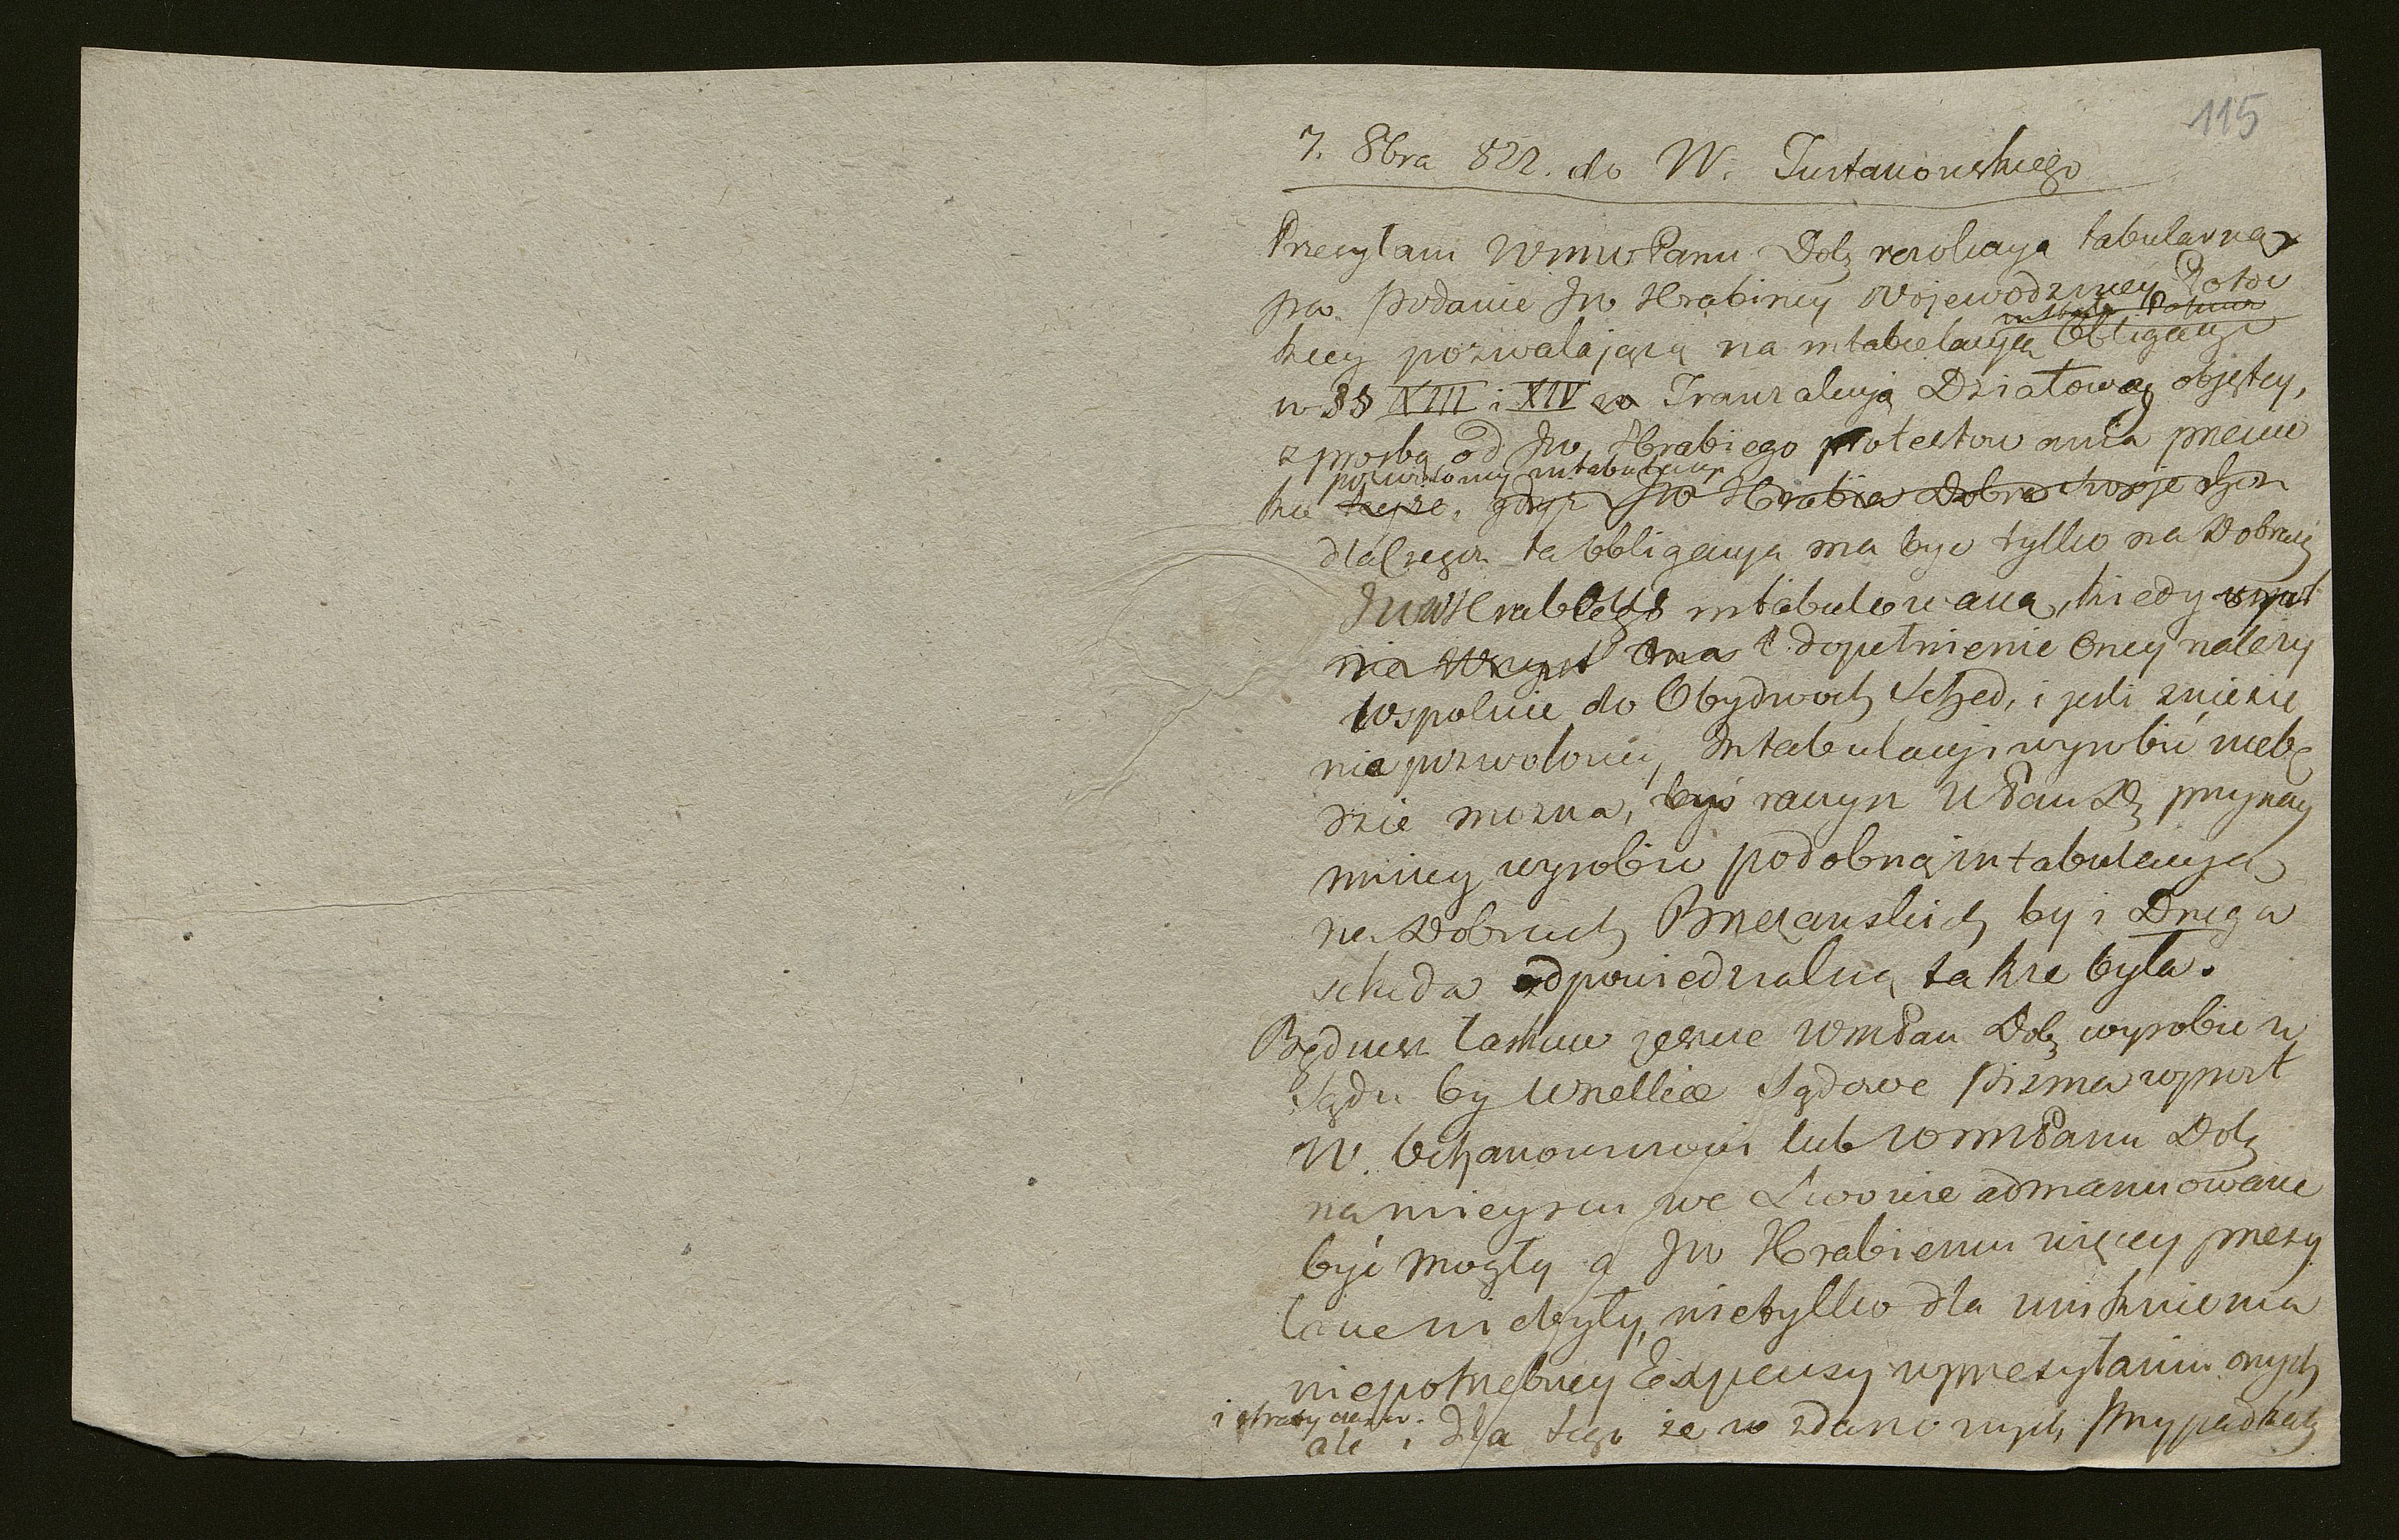 115
7. 8bra 822. do W. Tustanowskiego
Przesyłam WmwPanu Dob rezolucyą tabularną
na podanie Jw Hrabiney Wojewodziney Potoc
kiey pozwalającą na intabulacyą Obligacyi
w §§ XIII i XIV w Tranzakcyą Działową objętey,
z prosbą od Jw Hrabiego protestowania przeciw
pozwoloney intabulacyi
ko teyże, gdyż Jw Hrabia Dobra swoje
dla czego ta obligacya ma byc tylko na Dobrach
Jw Hrabiego intabulowana, kiedy
nia ona dopełnienie oney należy
wspolnie do Obydwoch Sched, i jesli zniesie
nia pozwoloney Intabulacyi wyrobić niebę
dzie można, byś raczył WPan Db przynay
mniey wyrobić podobną intabulacyą
na Dobrach Brzeżanskich by i Druga
scheda odpowiedzialną także była.
Będziesz łaskaw jeszcze WmPan Dob wyrobić w
Sądu by wszelkie Sądowe Pisma wprost
W. Ochanowiczowi lub WmwPanu Dob
na mieyscu we Lwowie admanuowane
być mogły a Jw Hrabiemu więcy przesy
łane niebyły, nietylko dla uniknienia
niepotrzebney Expensy w przesyłaniu onych
i straty czasu.
ale i dla tego że w zdarzonych przypadkach